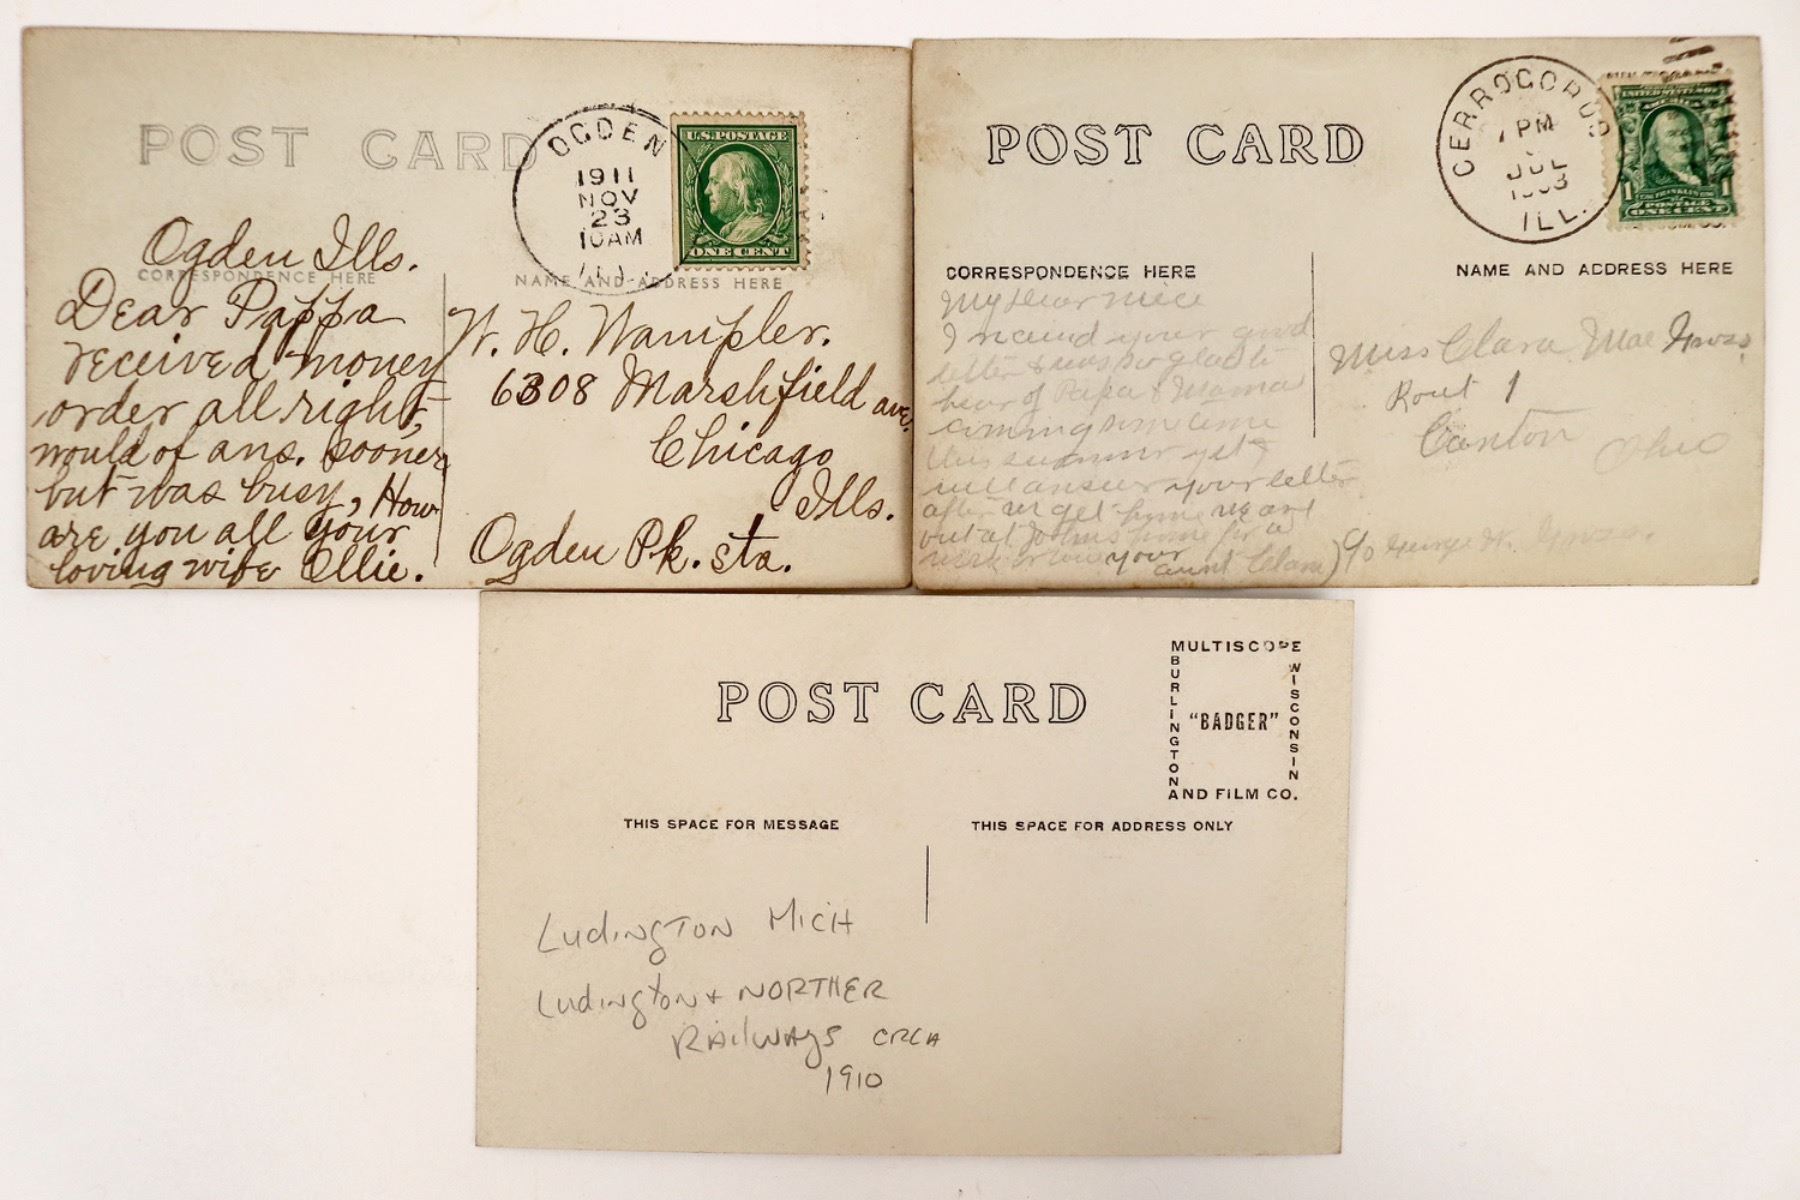 POST CARD
OGDEN
1911
NOV
23
10AM
ILL.
U.S. POSTAGE
ONE CENT
CORRESPONDENCE HERE
NAME AND ADDRESS HERE
Ogden Ills.
Dear Pappa
received money
order all right,
would of ans. sooner
but was busy, How
are you all your
loving wife Ollie.
W. H. Wampler.
6308 Marshfield ave.
Chicago
Ills.
Ogden Pk. sta.
POST CARD
CERRO GORDO
PM
JUL
ILL.
1 1
POSTAGE
ONE CENT
CORRESPONDENCE HERE
NAME AND ADDRESS HERE
My Dear niece
I received your good
letter & was so glad to
hear of Papa & Mama
coming some time
this summer yet
will answer your letter
after we get home we are
out at Johns home for a
week or two your
aunt Clara)
Miss Clara Mae
Rout 1
Canton Ohio
c/o George W.
POST CARD
MULTISCOPE
BURLINGTON
WISCONSIN
"BADGER"
AND FILM CO.
THIS SPACE FOR MESSAGE
THIS SPACE FOR ADDRESS ONLY
Ludington Mich
Ludington + NORTHER
RAilways CRCA
1910